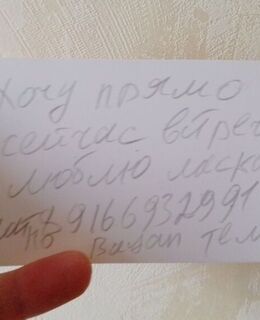 Хочу прямо
сейчас встреч
люблю ласко
89166932991
Ватсап тел